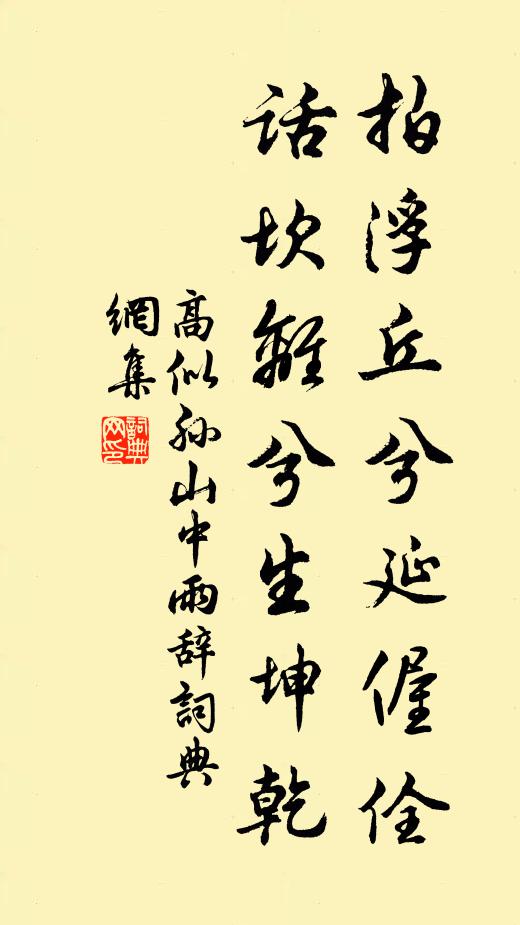 拍浮丘兮延偓佺
話坎離兮生坤乾
高似孫山中雨辞詞典
網集
詞典
网印